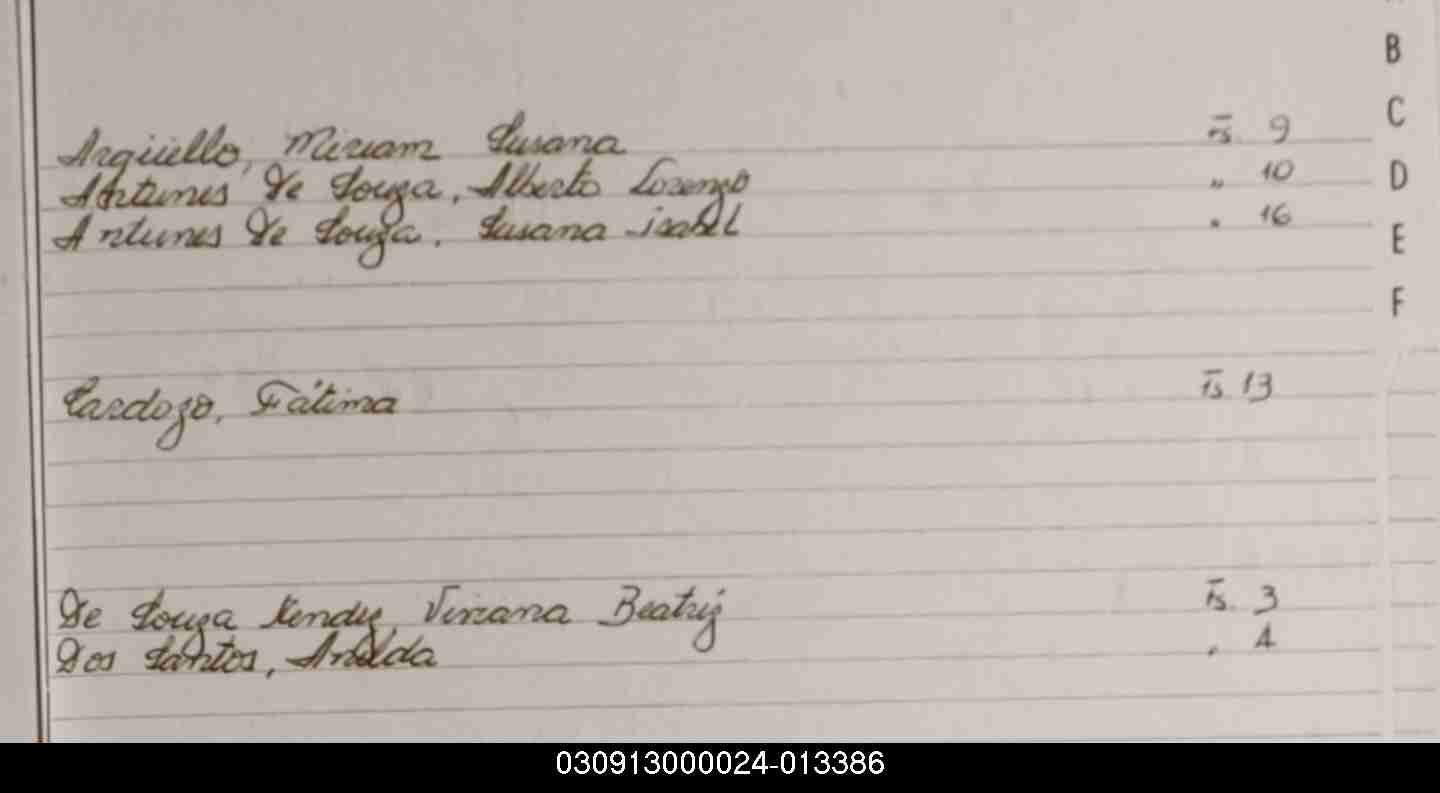 B
C
Argüello, Miriam Susana Fs. 9
Antunes De Souza, Alberto Lorenzo " 10
D
Antunes De Souza, Susana isabel " 16
E
F
Cardozo, Fátima Fs 13
De Souza Kendy, Viviana Beatriz Fs. 3
Dos Santos, " 4
030913000024-013386